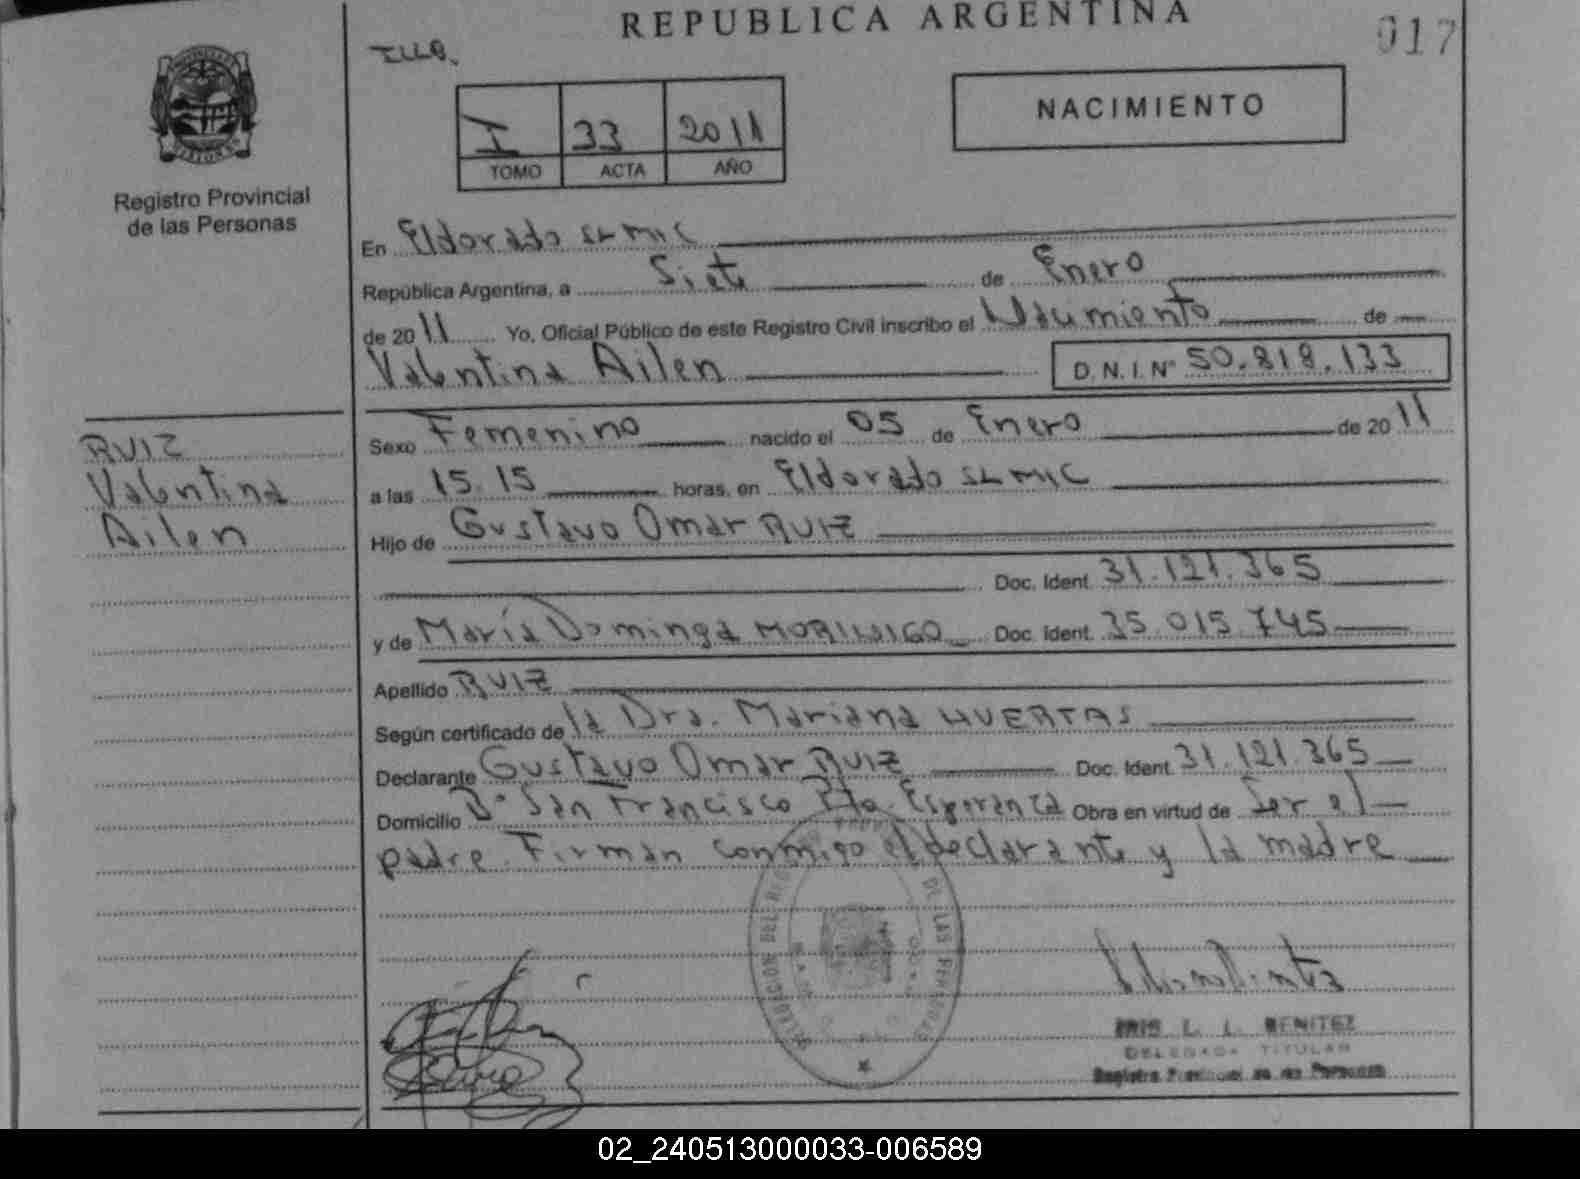 REPUBLICA ARGENTINA
017
I 33 2011
TOMO ACTA AÑO
NACIMIENTO
Registro Provincial
de las Personas
En Eldorado
República Argentina, a Siete de Enero
de 2011 Yo, Oficial Público de este Registro Civil inscribo el Nacimiento de
Valentina Ailen D.N.I. Nº 50.818.133
RUIZ
Valentina
Ailen
Sexo Femenino nacido el 05 de Enero de 2011
a las 15.15 horas, en Eldorado
Hijo de Gustavo Omar RUIZ
Doc. Ident. 31.121.365
y de María Dominga MORINIGO Doc. Ident. 35.015.745
Apellido RUIZ
Según certificado de la Dra. Mariana HUERTAS
Declarante Gustavo Omar RUIZ Doc. Ident. 31.121.365
Domicilio Bº San Francisco Pto. Esperanza Obra en virtud de Ser el
padre. Firman conmigo el declarante y la madre
DELEGACION DEL REGISTRO DE LAS PERSONAS
IRIS L. L. BENITEZ
DELEGADA TITULAR
Registro Provincial de las Personas
02_240513000033-006589